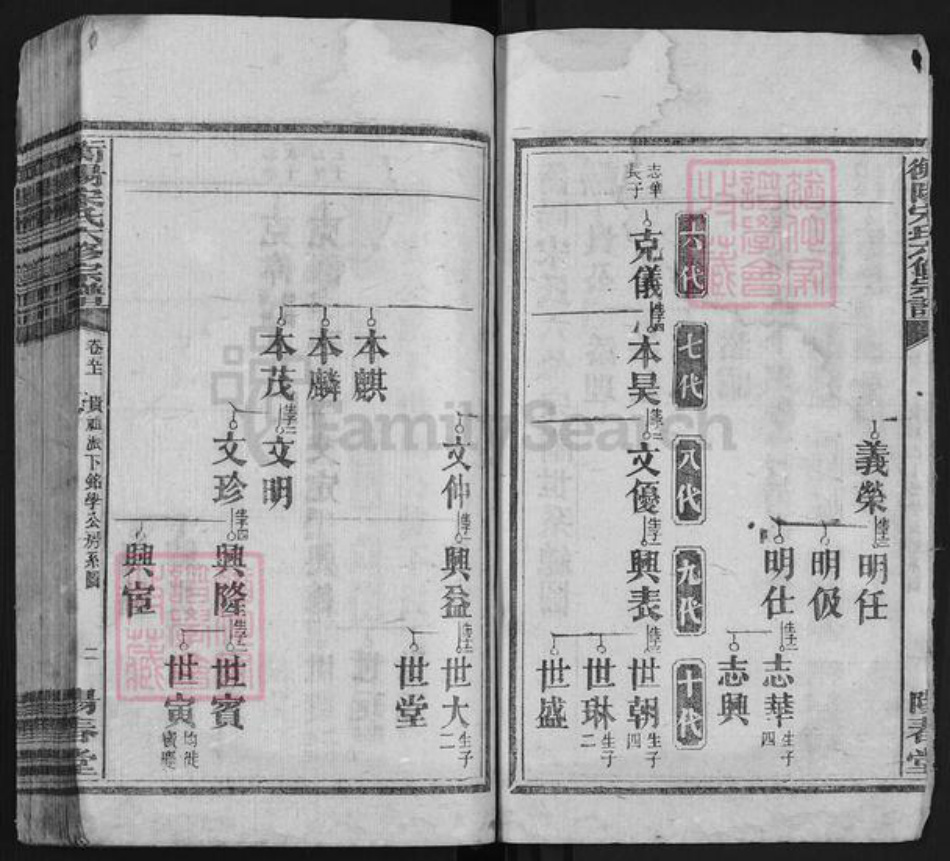 衡陽宋氏六修宗譜
陽春堂
義榮
生子三
明任
明伋
明仕
生子二
志華
生子四
志興
六代
七代
八代
九代
十代
志華長子
克儀
生子四
本昊
生子二
文優
生子一
興表
生子三
世朝
生子四
世琳
生子二
世盛
文仲
生子一
興益
生子二
世大
生子二
世堂
本麒
本麟
本茂
生子二
文明
文珍
生子四
興隆
生子二
世賓
世寅
興宦
衡陽宋氏六修宗譜
派下銘學公房系圖
二
陽春堂
FamilySearch